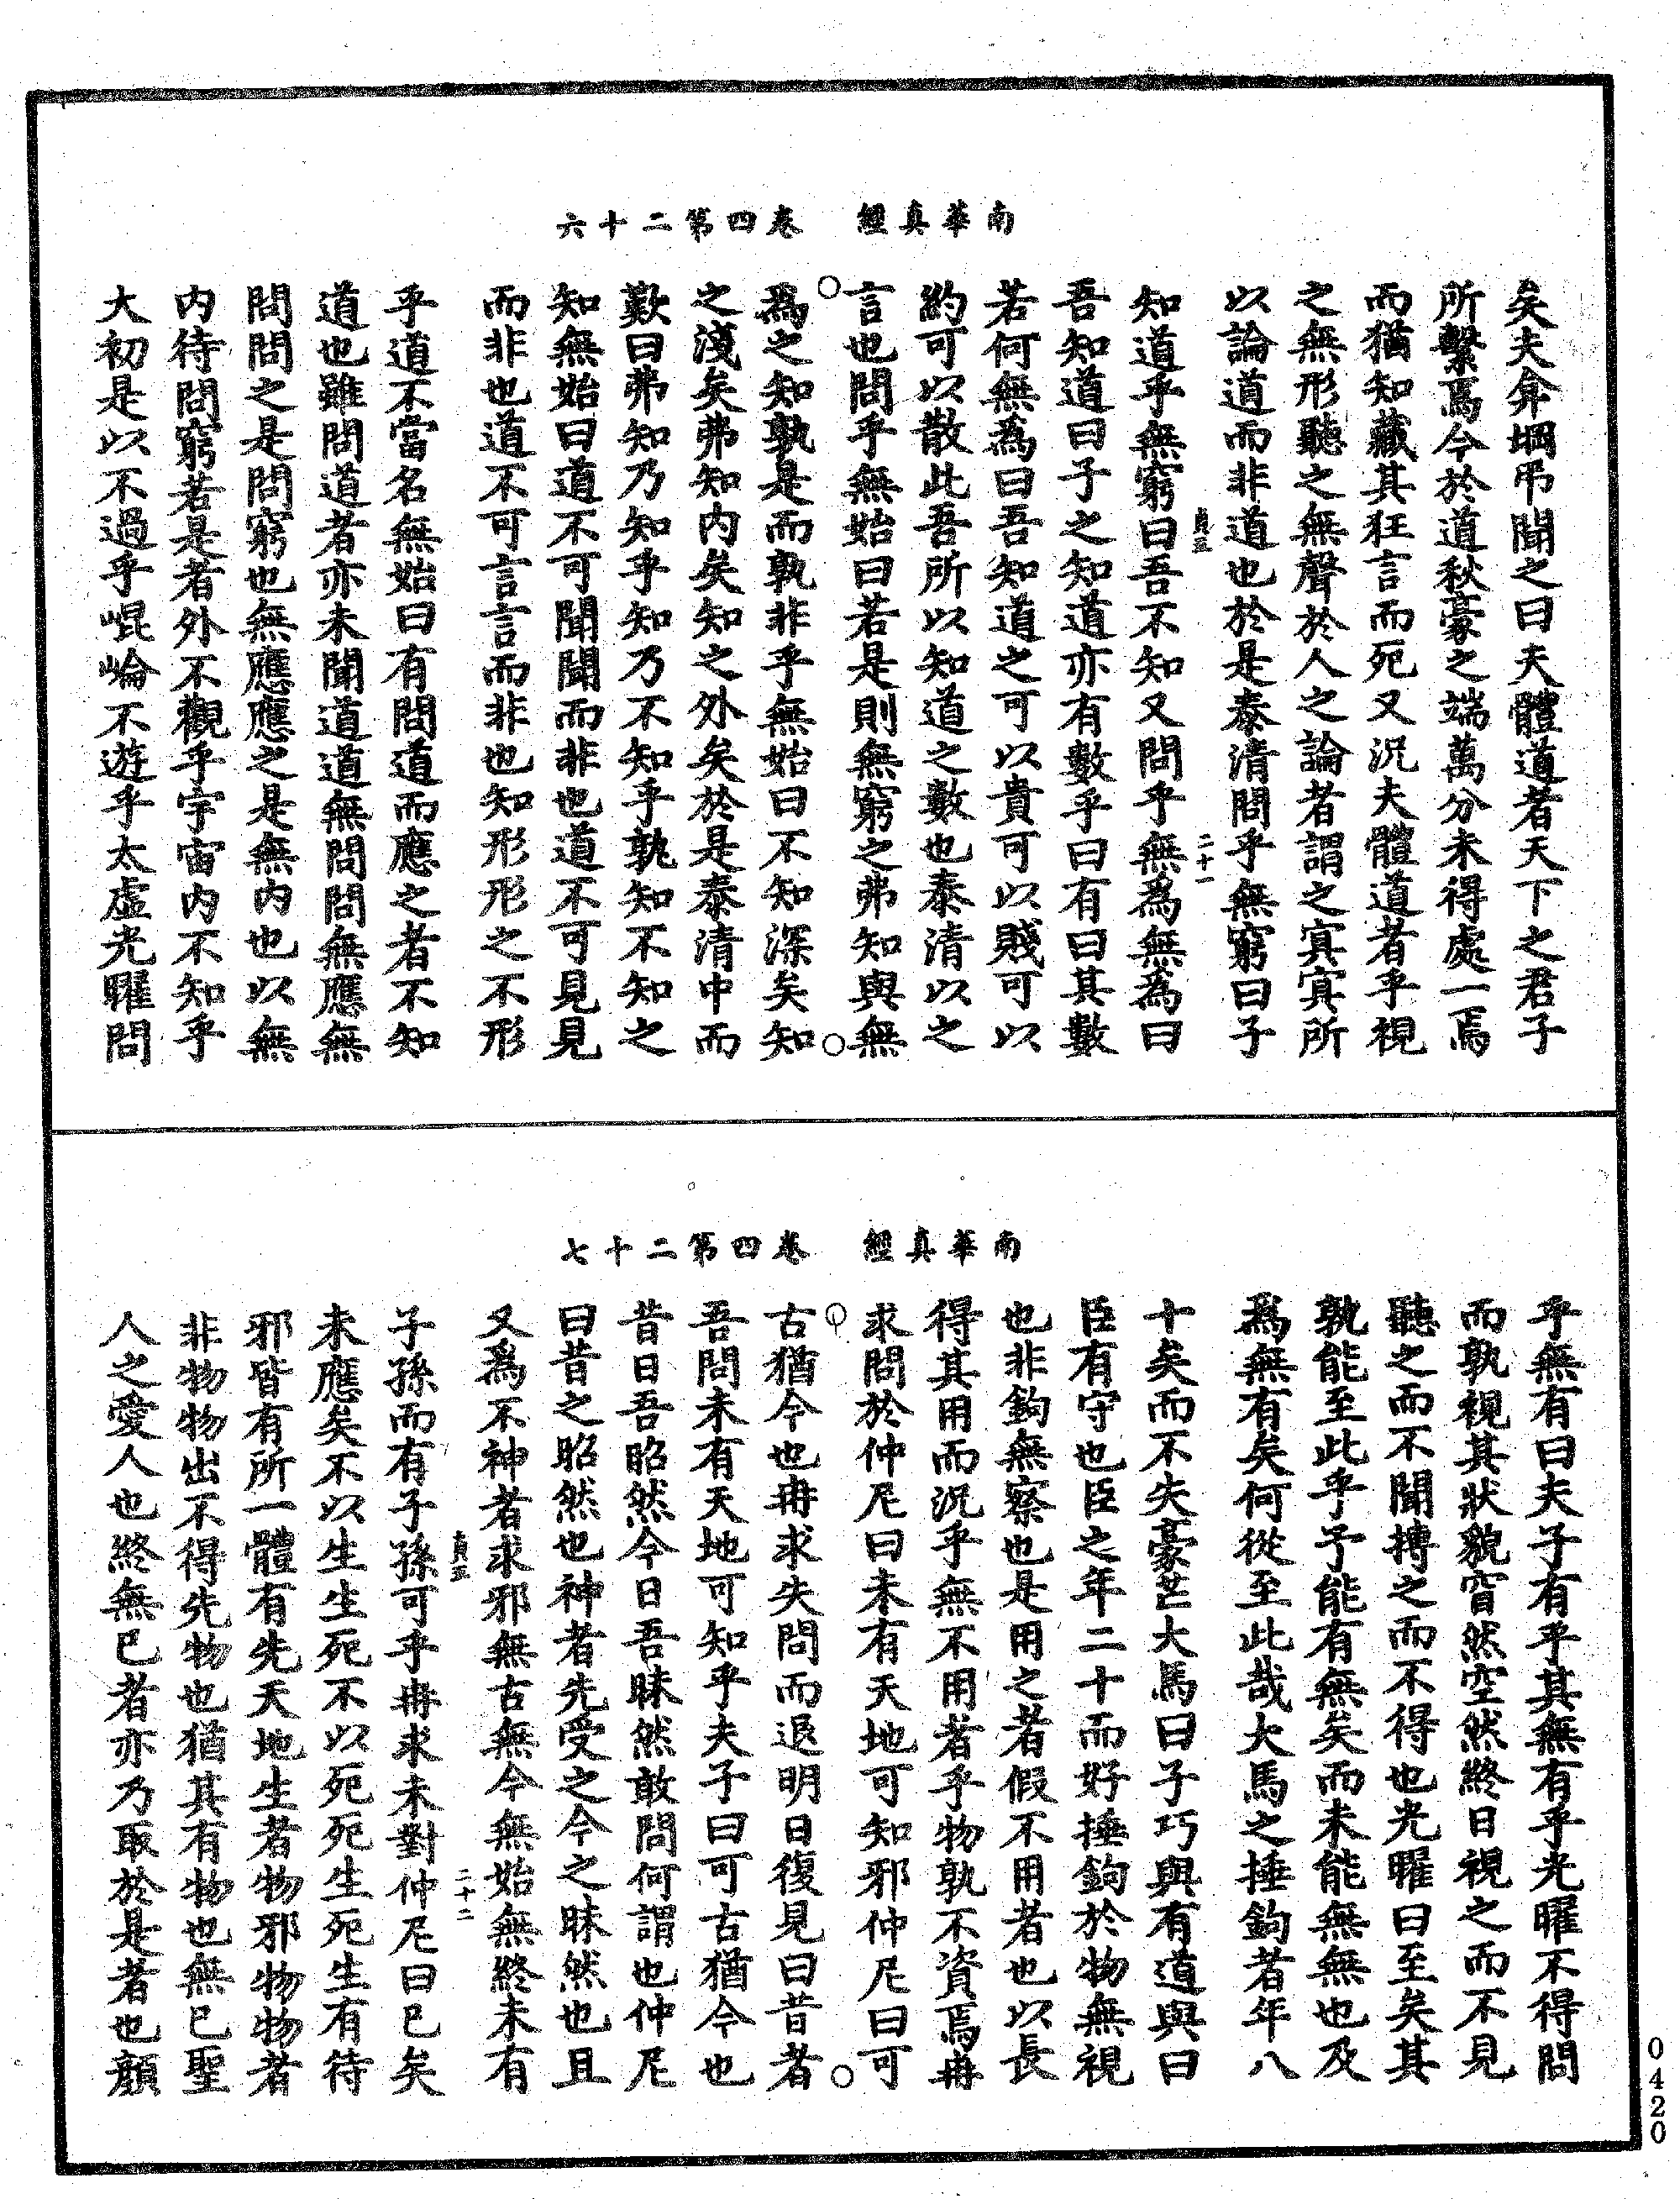 南華真經　卷四第二十六
矣夫弇堈弔聞之曰夫體道者天下之君子
所繫焉今於道秋豪之端萬分未得處一焉
而猶知藏其狂言而死又況夫體道者乎視
之無形聽之無聲於人之論者謂之冥冥所
以論道而非道也於是泰清問乎無窮曰子
知道乎無窮曰吾不知又問乎無為無為曰
二十一
吾知道曰子之知道亦有數乎曰有曰其數
若何無為曰吾知道之可以貴可以賤可以
約可以散此吾所以知道之數也泰清以之
言也問乎無始曰若是則無窮之弗知與無
為之知孰是而孰非乎無始曰不知深矣知
之淺矣弗知內矣知之外矣於是泰清中而
歎曰弗知乃知乎知乃不知乎孰知不知之
知無始曰道不可聞聞而非也道不可見見
而非也道不可言言而非也知形形之不形
乎道不當名無始曰有問道而應之者不知
道也雖問道者亦未聞道道無問問無應無
問問之是問窮也無應應之是無內也以無
內待問窮若是者外不觀乎宇宙內不知乎
大初是以不過乎崐崘不遊乎太虛光曜問
南華真經　卷四第二十七
乎無有曰夫子有乎其無有乎光曜不得問
而孰視其狀貌窅然空然終日視之而不見
聽之而不聞搏之而不得也光曜曰至矣其
孰能至此乎予能有無矣而未能無無也及
為無有矣何從至此哉大馬之捶鉤者年八
十矣而不失豪芒大馬曰子巧與有道與曰
臣有守也臣之年二十而好捶鉤於物無視
也非鉤無察也是用之者假不用者也以長
得其用而況乎無不用者乎物孰不資焉冉
求問於仲尼曰未有天地可知邪仲尼曰可
古猶今也冉求失問而退明日復見曰昔者
吾問未有天地可知乎夫子曰可古猶今也
昔日吾昭然今日吾昧然敢問何謂也仲尼
曰昔之昭然也神者先受之今之昧然也且
又為不神者求邪無古無今無始無終未有
子孫而有子孫可乎冉求未對仲尼曰已矣
二十二
未應矣不以生生死不以死死生死生有待
邪皆有所一體有先天地生者物邪物物者
非物物出不得先物也猶其有物也無已聖
人之愛人也終無已者亦乃取於是者也顏
0420